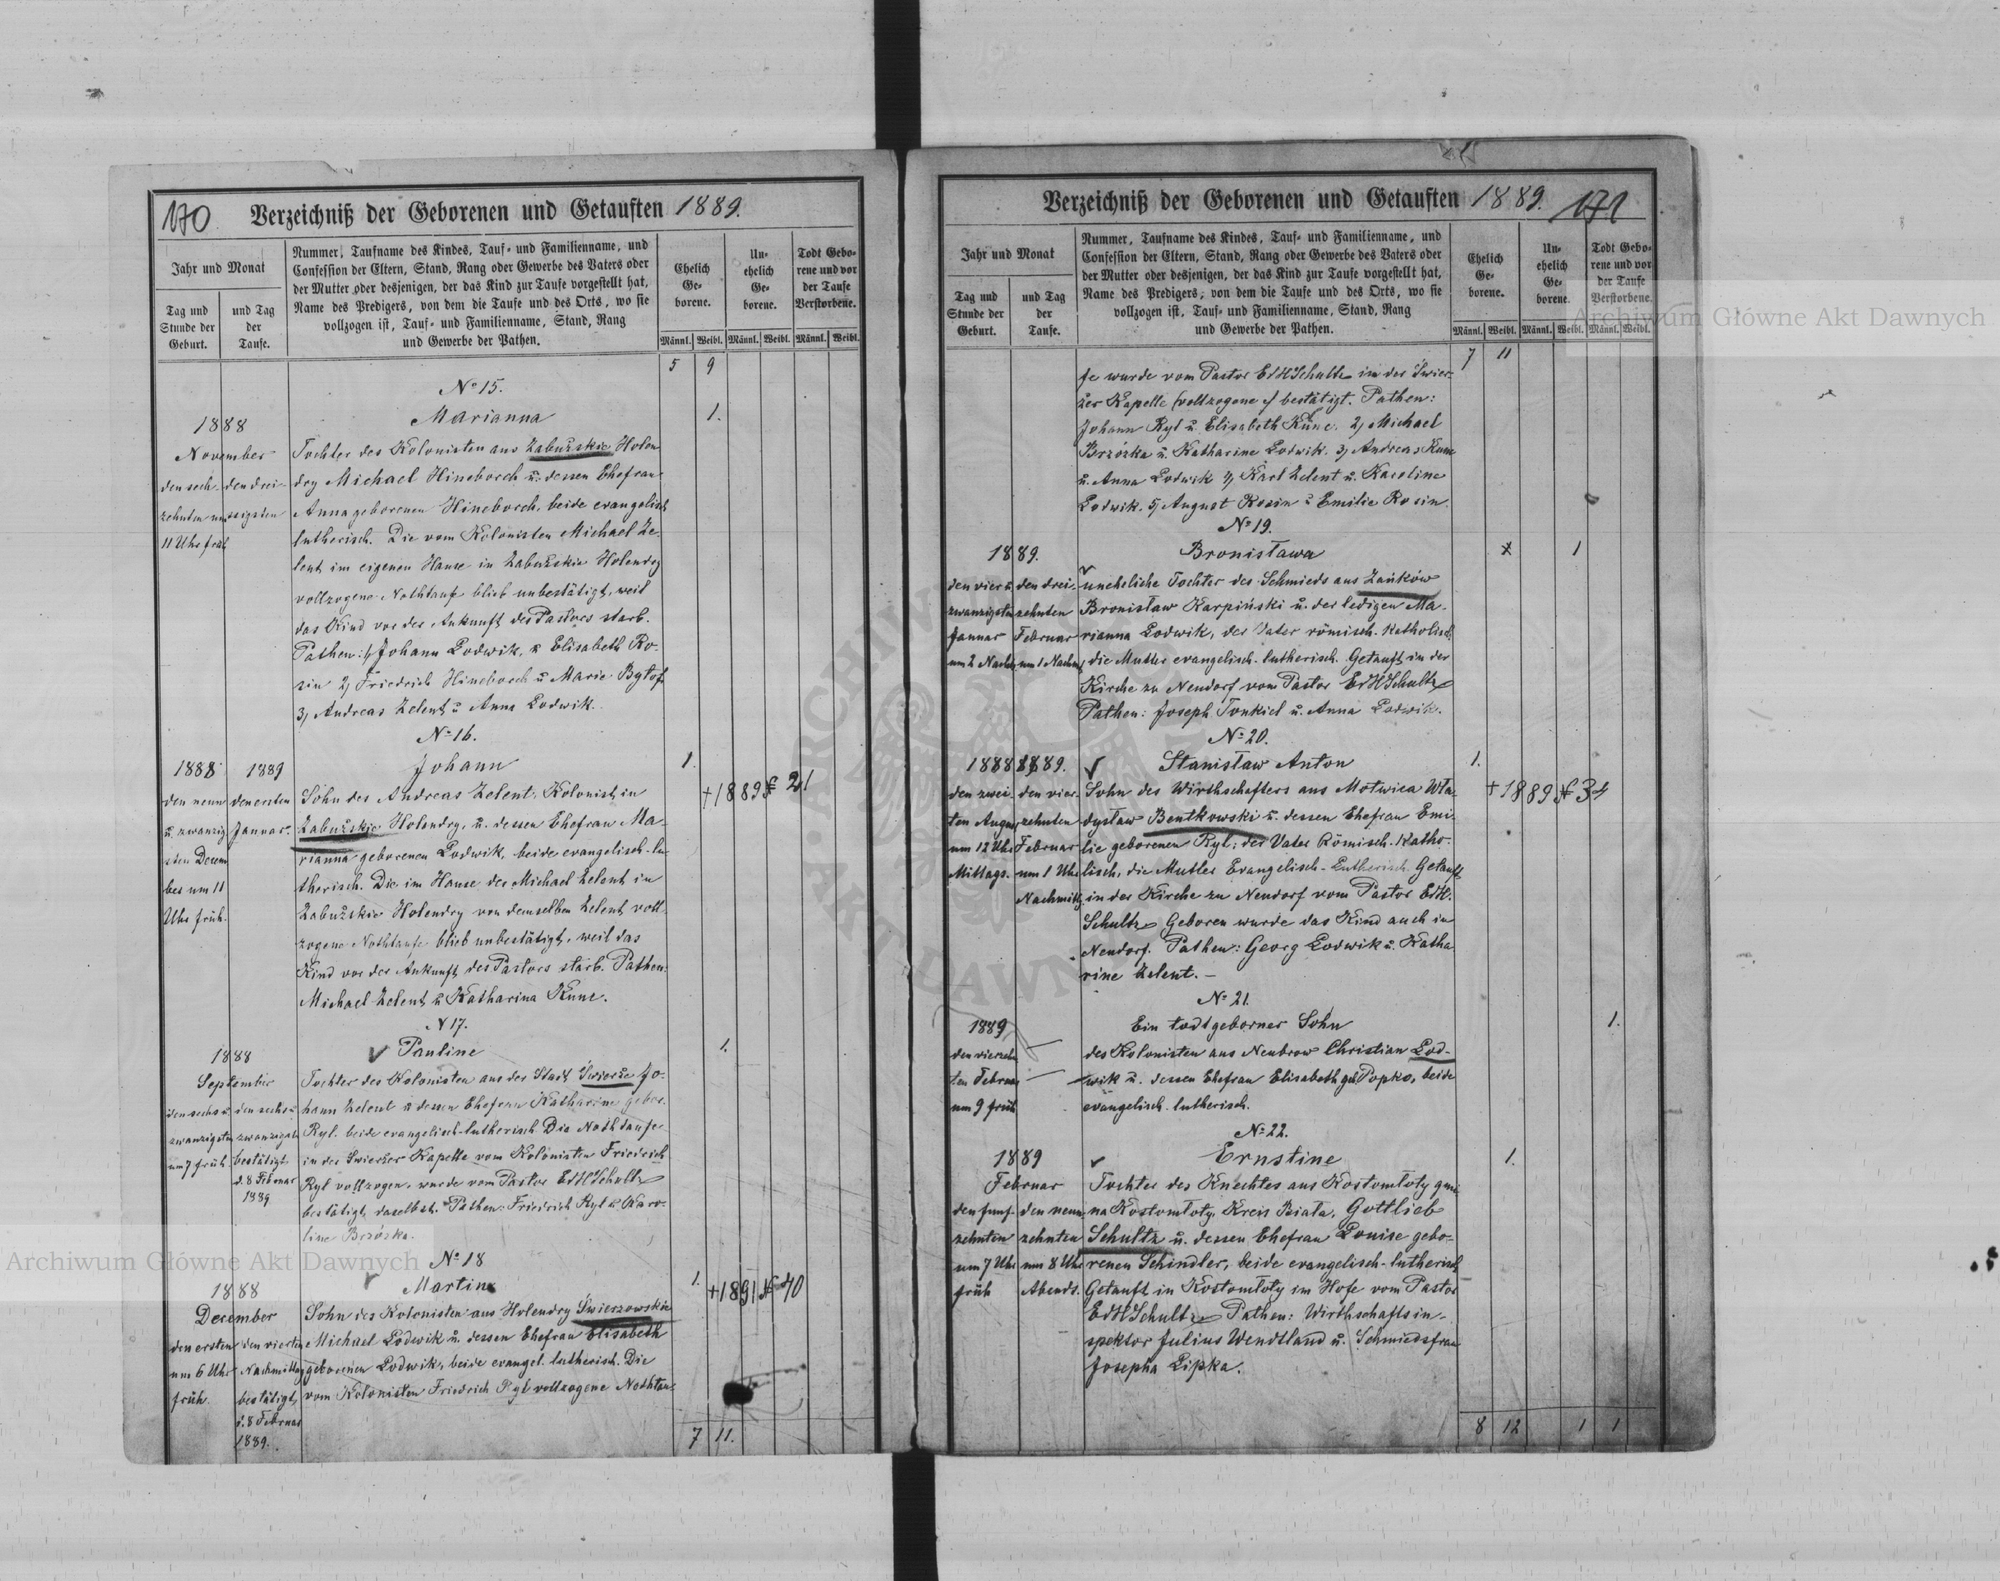 170
Verzeichniß der Geborenen und Getauften 1889.
Jahr und Monat
Tag und
Stunde der
Geburt.
und Tag
der
Taufe.
Nummer, Taufname des Kindes, Tauf- und Familienname, und
Confession der Eltern, Stand, Rang oder Gewerbe des Vaters oder
der Mutter oder desjenigen, der das Kind zur Taufe vorgestellt hat,
Name des Predigers, von dem die Taufe und des Orts, wo sie
vollzogen ist, Tauf- und Familienname, Stand, Rang
und Gewerbe der Pathen.
Ehelich
Ge-
borene.
Un-
ehelich
Ge-
borene.
Todt Gebo-
rene und vor
der Taufe
Verstorbene.
Männl. Weibl. Männl. Weibl. Männl. Weibl.
5 9
No 15.
Marianna 1.
1888
November
den sech-
zehnten um
11 Uhr früh
den drei-
ssigsten
Tochter des Kolonisten aus Zabużskie Holen
dry Michael Hineborch u. dessen Ehefrau
Anna geborenen Hineborch, beide evangelisch
lutherisch. Die vom Kolonisten Michael Ze-
lent im eigenen Hause in Zabużskie Holendry
vollzogene Nothtaufe blieb unbestätigt, weil
das Kind vor der Ankunft des Pastors starb.
Pathen: 1, Johann Lodwik, u Elisabeth Ro-
sin 2, Friedrich Hineborch u Marie Bytof
3, Andreas Zelent u Anna Lodwik.
No 16.
Johann 1.
1888 1889
den neun
u. zwanzig
sten Decem
ber um 11
Uhr früh.
den ersten
Januar.
+1889 № 21
Sohn des Andreas Zelent, Kolonist in
Zabużskie Holendry, u. dessen Ehefrau Ma-
rianna geborenen Lodwik, beide evangelisch-lu
therisch. Die im Hause des Michael Zelent in
Zabużskie Holendry von demselben Zelent voll
zogene Nothtaufe blieb unbestätigt, weil das
Kind vor der Ankunft des Pastors starb. Pathen:
Michael Zelent u Katharina Kune.
N 17.
Pauline 1.
1888
September
den sechs u.
zwanzigsten
um 7 früh.
den sechs u
zwanzigsten
bestätigt
d. 8 Februar
1889
Tochter des Kolonisten aus der Stadt Świerże Jo-
hann Zelent u dessen Ehefrau Katharine gebor.
Ryl, beide evangelisch-lutherisch Die Nothtaufe
in der Swierżer Kapelle vom Kolonisten Friedrich
Ryl vollzogen, wurde vom Pastor EdHSchultz
bestätigt, daselbst. Pathen: Friedrich Ryl u Karo-
line Brzózka.
No 18
Martin 1.
1888
December
den ersten
um 6 Uhr
früh.
den vierten
Nachmittag
bestätigt
d. 8 Februar
1889.
+1891 № 40
Sohn des Kolonisten aus Holendry Świerzowskie
Michael Lodwik u. dessen Ehefrau Elisabeth
geborenen Lodwik, beide evangel. lutherisch. Die
vom Kolonisten Friedrich Ryl vollzogene Nothtau-
7 11.
Verzeichniß der Geborenen und Getauften 1889. 171
Jahr und Monat
Tag und
Stunde der
Geburt.
und Tag
der
Taufe.
Nummer, Taufname des Kindes, Tauf- und Familienname, und
Confession der Eltern, Stand, Rang oder Gewerbe des Vaters oder
der Mutter oder desjenigen, der das Kind zur Taufe vorgestellt hat,
Name des Predigers, von dem die Taufe und des Orts, wo sie
vollzogen ist, Tauf- und Familienname, Stand, Rang
und Gewerbe der Pathen.
Ehelich
Ge-
borene.
Un-
ehelich
Ge-
borene.
Todt Gebo-
rene und vor
der Taufe
Verstorbene.
Männl. Weibl. Männl. Weibl. Männl. Weibl.
7 11
fe wurde vom Pastor EdHSchultz in der Świer-
żer Kapelle (vollzogene) bestätigt. Pathen:
Johann Ryl u. Elisabeth Kune. 2, Michael
Brzózka u. Katharine Lodwik. 3, Andreas Kune
u. Anna Lodwik 4, Karl Zelent u. Karoline
Lodwik. 5, August Rosin u Emilie Rosin.
No 19.
Bronisława x 1
1889.
den vier u
zwanzigsten
Januar
um 2 Nachm.
den drei-
zehnten
Februar
um 1 Nachm.
uneheliche Tochter des Schmieds aus Zańków
Bronisław Karpiński u. der ledigen Ma-
rianna Lodwik, der Vater römisch-katholisch,
die Mutter evangelisch-lutherisch. Getauft in der
Kirche zu Neudorf vom Pastor EdHSchultz
Pathen: Joseph Tonkiel u. Anna Lodwik.
No 20.
Stanisław Anton 1.
1888 1889.
den zwei-
ten August
um 12 Uhr
Mittags.
den vier-
zehnten
Februar
um 1 Uhr
Nachmittg.
+1889 № 34
Sohn des Wirthschafters aus Motwica Wła-
dysław Bentkowski u. dessen Ehefrau Emi-
lie geborenen Ryl; der Vater Römisch-Katho-
lisch, die Mutter Evangelisch-Lutherisch. Getauft
in der Kirche zu Neudorf vom Pastor EdH.
Schultz Geboren wurde das Kind auch in
Neudorf. Pathen: Georg Lodwik u. Katha
rine Zelent.—
No 21.
Ein todtgeborner Sohn 1.
1889
den vierzehn
ten Februar
um 9 früh
des Kolonisten aus Neubrow Christian Lod-
wik u. dessen Ehefrau Elisabeth geb Popko, beide
evangelisch-lutherisch.
No 22.
Ernstine 1.
1889
Februar
den fünf-
zehnten
um 7 Uhr
früh
den neun-
zehnten
um 8 Uhr
Abends.
Tochter des Knechtes aus Kostomłoty gmi
na Kostomłoty, Kreis Biała, Gottlieb
Schultz u. dessen Ehefrau Louise gebo-
renen Schindler, beide evangelisch-lutherisch
Getauft in Kostomłoty im Hofe vom Pastor
EdHSchultz Pathen: Wirthschaftsin-
spektor Julius Wendtland u. Schmiedsfrau
Josepha Lipka.
8 12 1 1
Archiwum Główne Akt Dawnych
Archiwum Główne Akt Dawnych